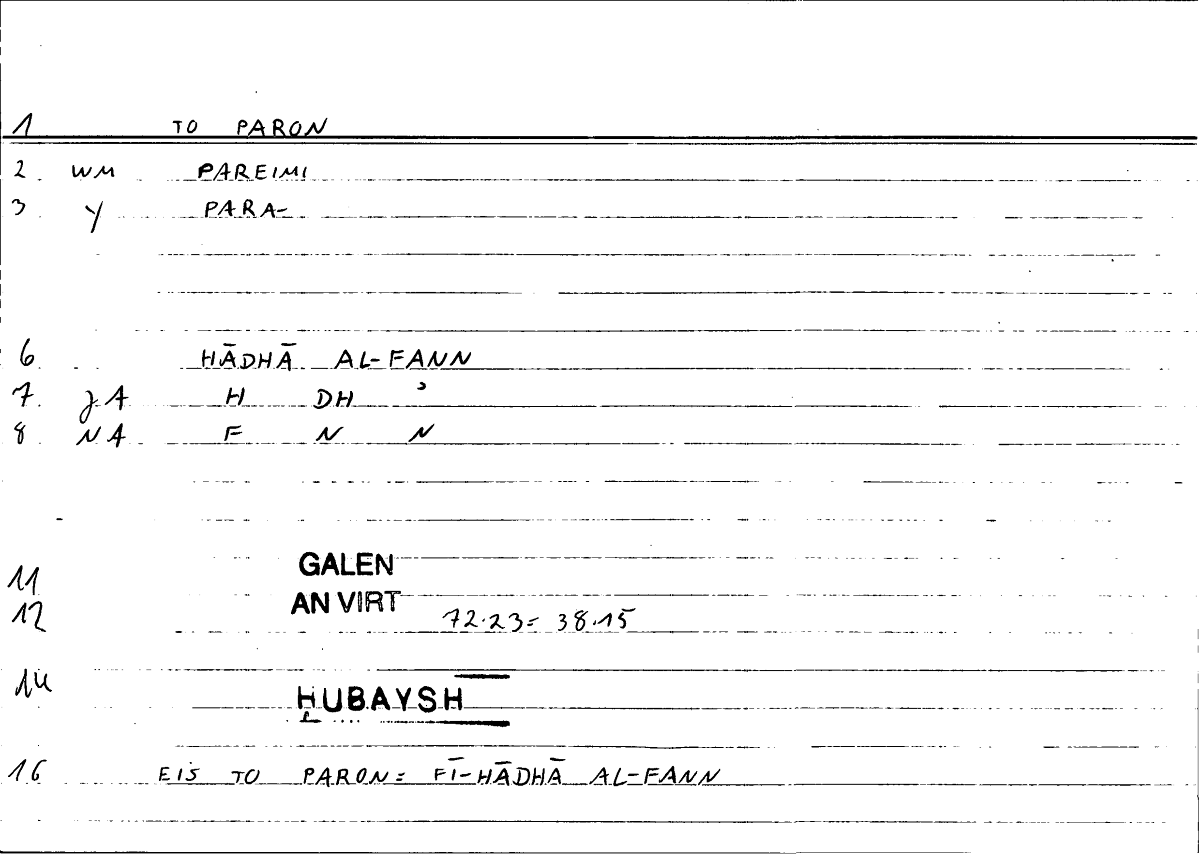 1 TO PARON
2 WM PAREIMI
3 Y PARA-
6 HĀDHĀ AL-FANN
7 JA H DH ʾ
8 NA F N N
11 GALEN
12 AN VIRT 72.23= 38.15
14 ḤUBAYSH
16 EIS TO PARON= FĪ-HĀDHĀ AL-FANN